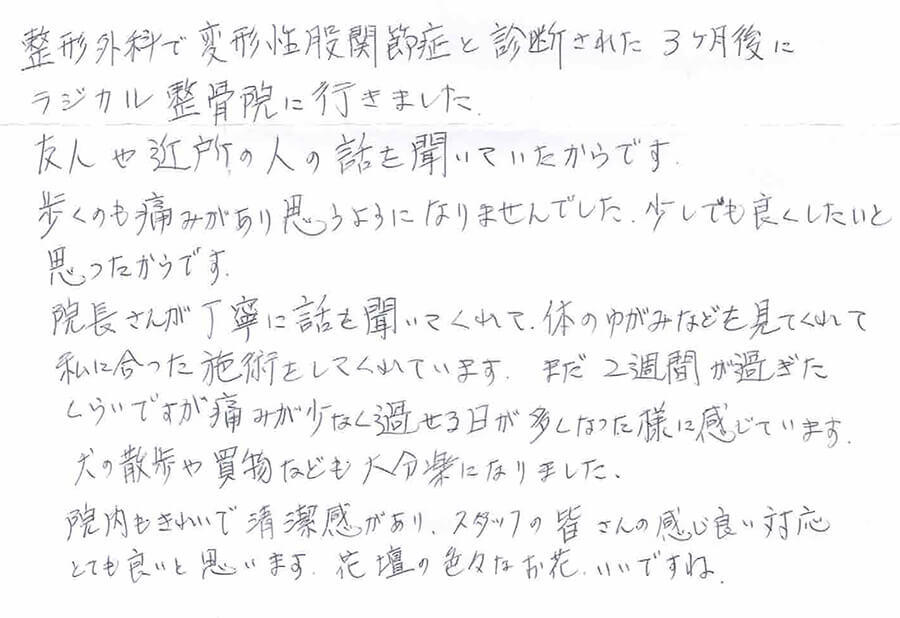 整形外科で変形性股関節症と診断された3ヶ月後に
ラジカル整骨院に行きました.
友人や近所の人の話を聞いていたからです.
歩くのも痛みがあり思うようになりませんでした.少しでも良くしたいと
思ったからです.
院長さんが丁寧に話を聞いてくれて.体のゆがみなどを見てくれて
私に合った施術をしてくれています. まだ2週間が過ぎた
くらいですが痛みが少なく過せる日が多くなった様に感じています.
犬の散歩や買物なども大分楽になりました、
院内もきれいで清潔感があり、スタッフの皆さんの感じ良い対応
とても良いと思います.花壇の色々なお花.いいですね.